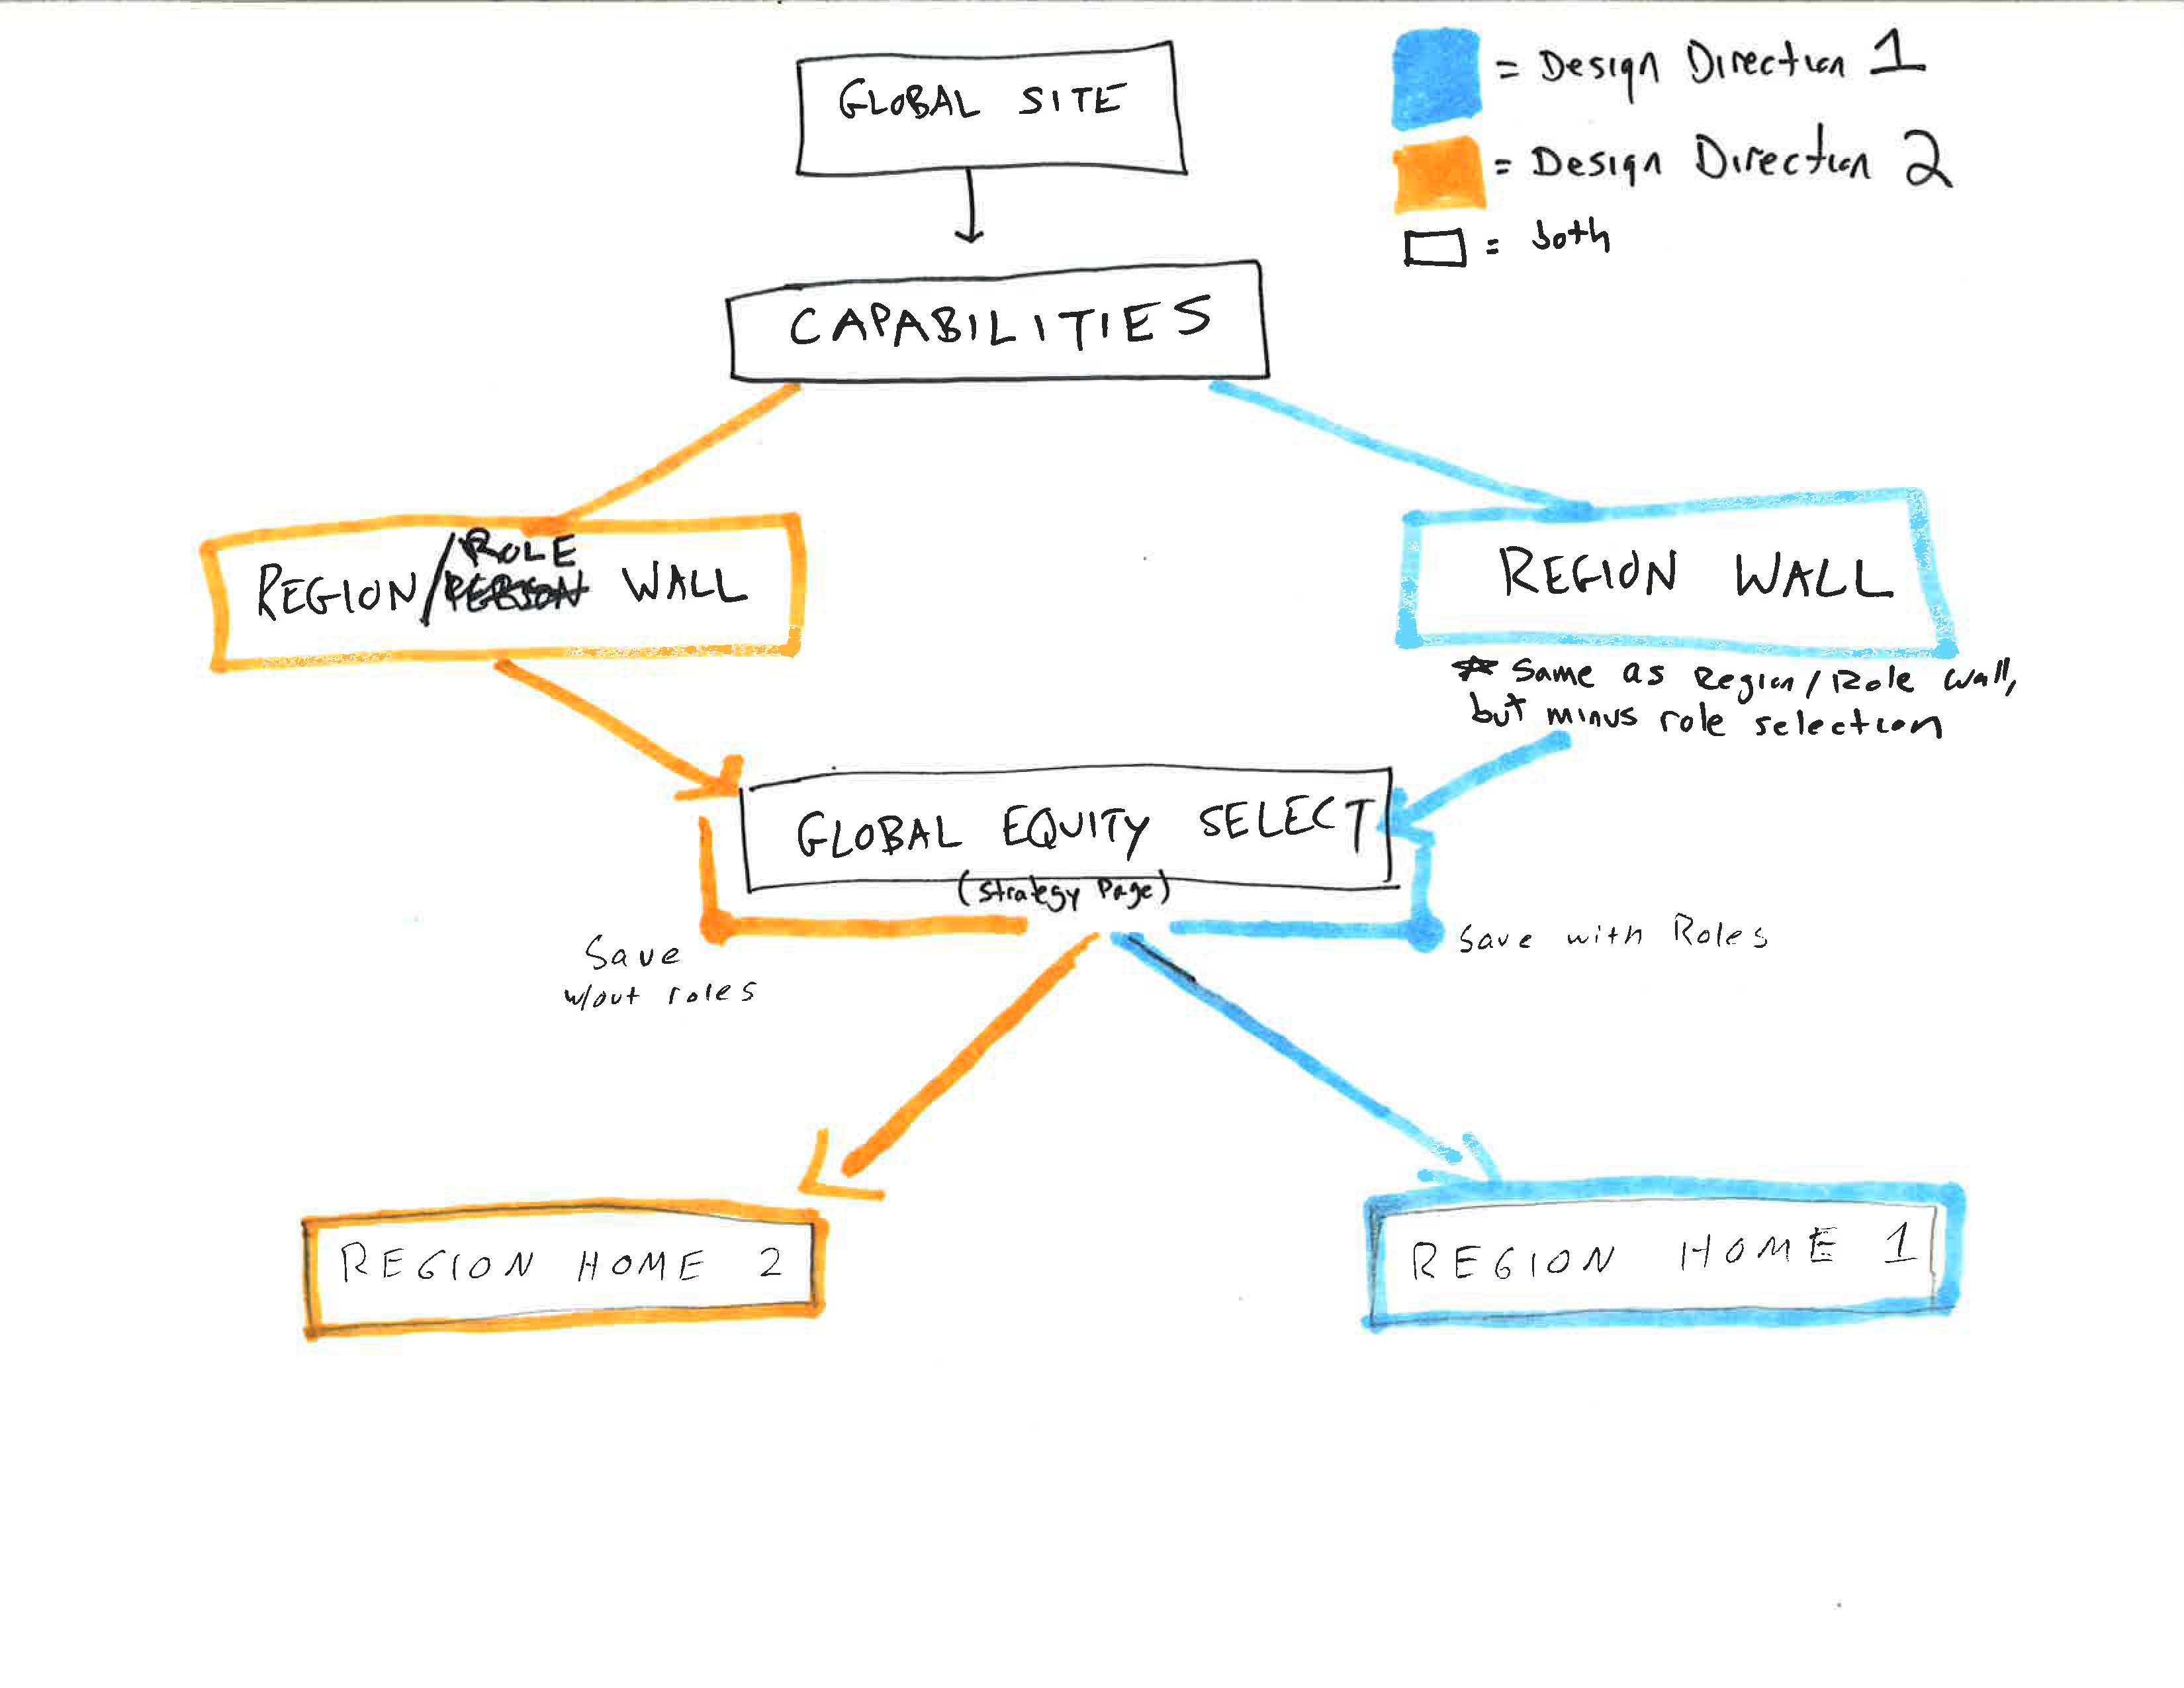 GLOBAL SITE
= Design Direction 1
= Design Direction 2
= both
CAPABILITIES
REGION/ROLE PERSON WALL
REGION WALL
* Same as Region/Role Wall,
but minus role selection
GLOBAL EQUITY SELECT
(Strategy Page)
Save
w/out roles
Save with Roles
REGION HOME 2
REGION HOME 1